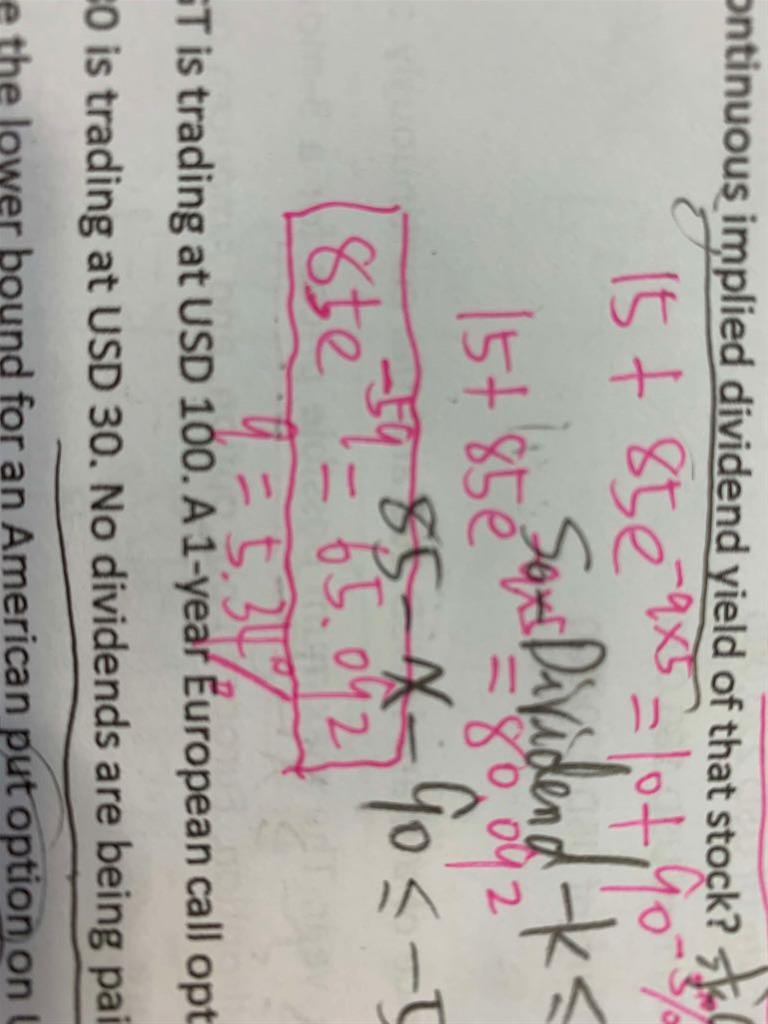 ontinuous implied dividend yield of that stock?
15 + 85e^-q×5 = 10 + 90^-5%
Dividend - k ≤
15 + 85e = 80.092
85 - x - 90 ≤ -
85e^-5q = 65.092
q = 5.34%
GT is trading at USD 100. A 1-year European call opt
30 is trading at USD 30. No dividends are being pai
e the lower bound for an American put option on